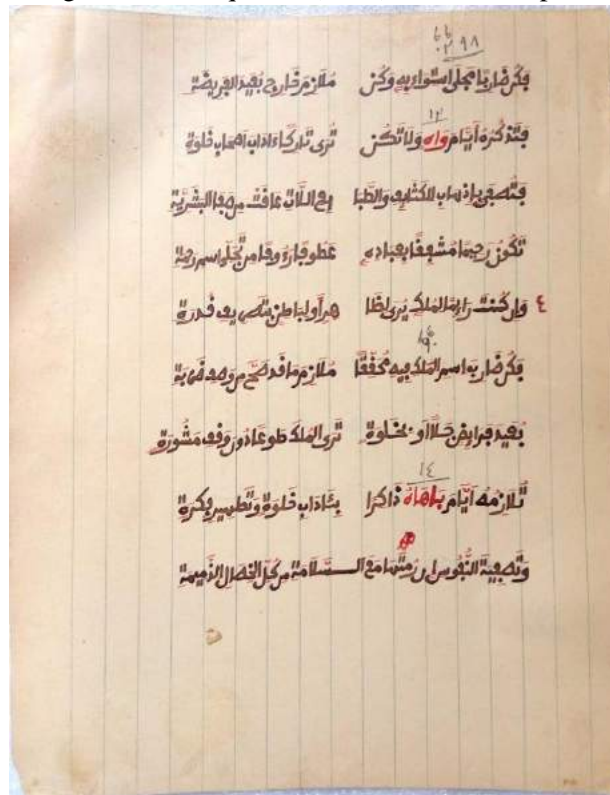 ٢٩٨
فكن ضاربا مجلى استواء به وكن ملازم خارج بعيد الفريضة
١٢
فتذكره أيام واه ولا تكن ترى تاركا ءاداب أصحاب خلوة
فتصفى بإذهاب الكثايف مع اللات عاقت من صفا البشرية
تكون رحيما مشفقا بعباده عطوفا رؤوفا من تجلى اسم رحمة
٤ وإن كنت رائم الملك يرى لظا هرا ولباطن بتصريف قدرة
فكن ضاربه اسم الملك فيه محققا ملازم ما قد صح من وصف ضربة
بعيد فرايض جلا أو بخلوة ترى الملك طوعا دون وقف مشورة
١٤
تلازمه أيام باهاه ذاكرا بئاداب خلوة وتطهير فكرة
وتصفية النفوس إن رمتها مع السلامة من كل الخصال الذميمة